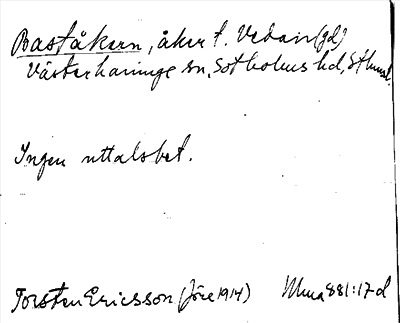 Baståkern, åker t. Vedair (gd)
Västerhaninge sn, Sotholms hd, Sthmsl.
Ingen uttalsbet.
Torsten Ericsson (före 1914) Mma 881:17 d